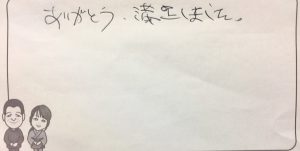 ありがとう、満足しました。